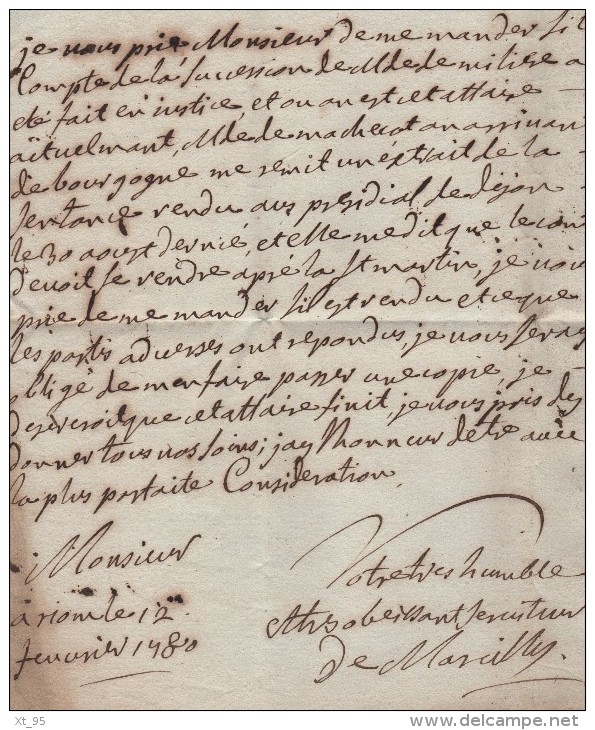 je vous prie Monsieur de me mander sil
Compte de la succession de Mde de milire a
eté fait en justice, et ou an est cet affaire
actuelmant, Mde de machecot an arrivan
de bourgogne me remit un éxtrait de la
sentance rendu aus présidial de dijon
le 30 aoust dernié, et elle me dit que le con
devoit se rendre aprè la St martin, je vous
prie de me mander sil est rendu et ce que
les partis adverses ont repondus, je vous seray
obligé de men faire passer une copie, je
desireroit que cet affaire finit, je vous pris dy
donner tous vos soins; jay lhonneur detre avec
la plus parfaite Consideration,
Monsieur
Votre tres humble
à riom le 12
et trs obeissant serviteur
fevrier 1780
De Marcilly.
Xt_95